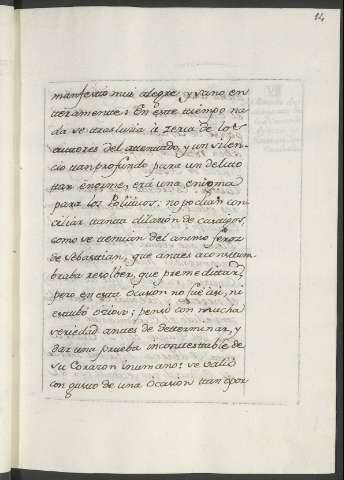 14
manifestò mui alegre, y vano en
teramente: En este tiempo na
da se traslucia à zerca de los
autores del attentado, y un silen
cio tan profundo para un delicto
tan énorme, erà una enigma
para los Politicos; no podian con
ciliar tanta dilacion de castigos,
como se temian del animo feroz
de Sebastian, que antes acostum
braba resolver, que premeditar;
pero en esta ocasion no fuè àsi, ni
estubò ocioso; pensò con mucha
seriedad antes de determinar, y
dar una prueba incontestable de
su Corazon inumano: se valiò
con gusto de una ocasion tan opor